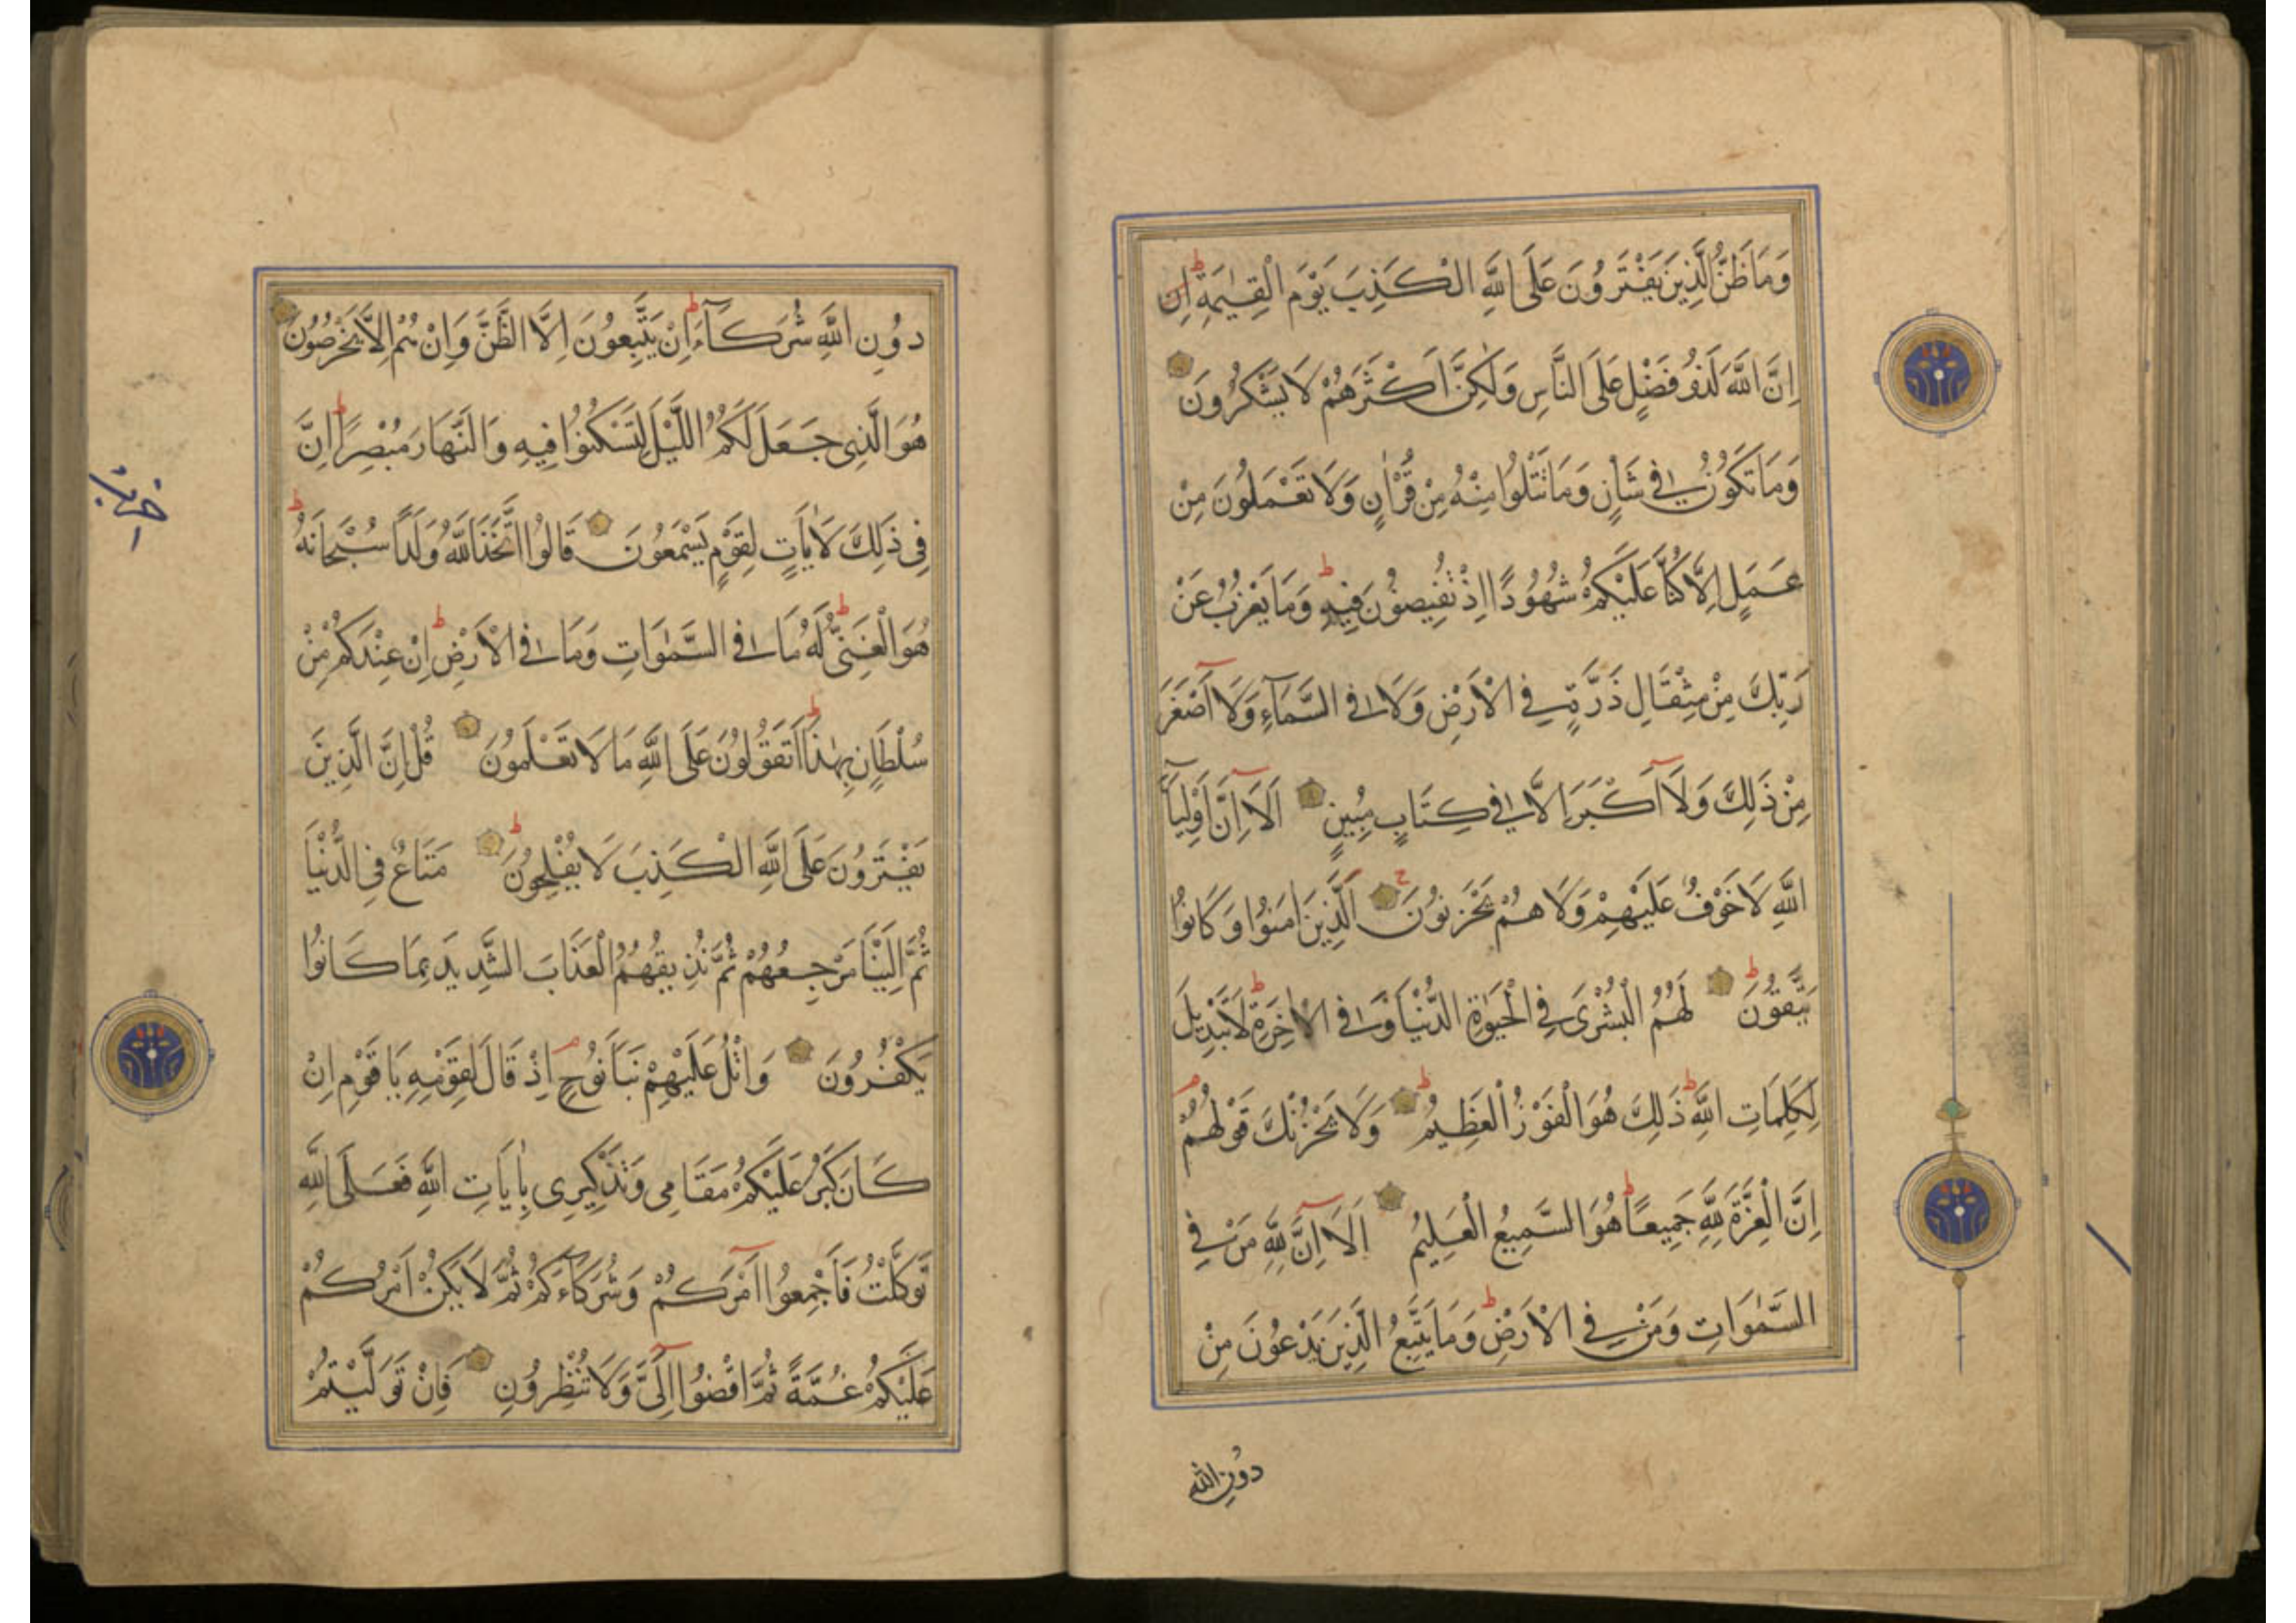 وَمَا ظَنُّ الَّذِينَ يَفْتَرُونَ عَلَى اللَّهِ الْكَذِبَ يَوْمَ الْقِيٰمَةِ ط اِن
اِنَّ اللَّهَ لَذُو فَضْلٍ عَلَى النَّاسِ وَلٰكِنَّ اَكْثَرَهُمْ لَا يَشْكُرُونَ
وَمَا تَكُونُ فِي شَأْنٍ وَمَا تَتْلُوا مِنْهُ مِنْ قُرْاٰنٍ وَلَا تَعْمَلُونَ مِنْ
عَمَلٍ اِلَّا كُنَّا عَلَيْكُمْ شُهُودًا اِذْ تُفِيضُونَ فِيهِ ط وَمَا يَعْزُبُ عَنْ
رَبِّكَ مِنْ مِثْقَالِ ذَرَّةٍ فِي الْاَرْضِ وَلَا فِي السَّمَآءِ وَلَا اَصْغَرَ
مِنْ ذَلِكَ وَلَا اَكْبَرَ اِلَّا فِي كِتَابٍ مُبِينٍ اَلَا اِنَّ اَوْلِيَآءَ
اللَّهِ لَا خَوْفٌ عَلَيْهِمْ وَلَا هُمْ يَحْزَنُونَ ج اَلَّذِينَ اٰمَنُوا وَكَانُوا
يَتَّقُونَ ط لَهُمُ الْبُشْرَى فِي الْحَيٰوةِ الدُّنْيَا وَفِي الْاٰخِرَةِ ط لَا تَبْدِيلَ
لِكَلِمَاتِ اللَّهِ ط ذَلِكَ هُوَ الْفَوْزُ الْعَظِيمُ ط وَلَا يَحْزُنْكَ قَوْلُهُمْ م
اِنَّ الْعِزَّةَ لِلَّهِ جَمِيعًا ط هُوَ السَّمِيعُ الْعَلِيمُ اَلَا اِنَّ لِلَّهِ مَنْ فِي
السَّمٰوَاتِ وَمَنْ فِي الْاَرْضِ ط وَمَا يَتَّبِعُ الَّذِينَ يَدْعُونَ مِنْ
دُونِ اللَّه
دُونِ اللَّهِ شُرَكَآءَ ط اِنْ يَتَّبِعُونَ اِلَّا الظَّنَّ وَاِنْ هُمْ اِلَّا يَخْرُصُونَ
هُوَ الَّذِي جَعَلَ لَكُمُ اللَّيْلَ لِتَسْكُنُوا فِيهِ وَالنَّهَارَ مُبْصِرًا ط اِنَّ
فِي ذَلِكَ لَاٰيَاتٍ لِقَوْمٍ يَسْمَعُونَ قَالُوا اتَّخَذَ اللَّهُ وَلَدًا سُبْحَانَهُ ط
هُوَ الْغَنِيُّ ط لَهُ مَا فِي السَّمٰوَاتِ وَمَا فِي الْاَرْضِ ط اِنْ عِنْدَكُمْ مِنْ
سُلْطَانٍ بِهٰذَا ط اَتَقُولُونَ عَلَى اللَّهِ مَا لَا تَعْلَمُونَ قُلْ اِنَّ الَّذِينَ
يَفْتَرُونَ عَلَى اللَّهِ الْكَذِبَ لَا يُفْلِحُونَ ط مَتَاعٌ فِي الدُّنْيَا
ثُمَّ اِلَيْنَا مَرْجِعُهُمْ ثُمَّ نُذِيقُهُمُ الْعَذَابَ الشَّدِيدَ بِمَا كَانُوا
يَكْفُرُونَ وَاتْلُ عَلَيْهِمْ نَبَاَ نُوحٍ م اِذْ قَالَ لِقَوْمِهِ يَا قَوْمِ اِنْ
كَانَ كَبُرَ عَلَيْكُمْ مَقَامِي وَتَذْكِيرِي بِاٰيَاتِ اللَّهِ فَعَلَى اللَّهِ
تَوَكَّلْتُ فَاَجْمِعُوا اَمْرَكُمْ وَشُرَكَآءَكُمْ ثُمَّ لَا يَكُنْ اَمْرُكُمْ
عَلَيْكُمْ غُمَّةً ثُمَّ اقْضُوا اِلَيَّ وَلَا تُنْظِرُونِ فَاِنْ تَوَلَّيْتُمْ